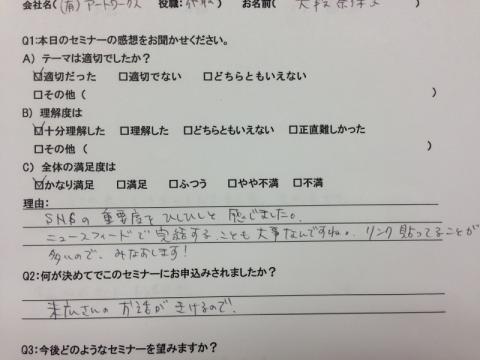 会社名( (有) アートワークス 役職: 代表 お名前(
Q1:本日のセミナーの感想をお聞かせください。
A) テーマは適切でしたか?
☑適切だった □適切でない □どちらともいえない
□その他 ( )
B) 理解度は
☑十分理解した □理解した □どちらともいえない □正直難しかった
□その他 ( )
C) 全体の満足度は
☑かなり満足 □満足 □ふつう □やや不満 □不満
理由:
SNSの重要度をひしひしと感じました。
ニュースフィードで完結することも大事なんですね。リンク貼ってることが
多いので、みなおします!
Q2:何が決めてでこのセミナーにお申込みされましたか?
末広さんのお話がきけるので。
Q3:今後どのようなセミナーを望みますか?